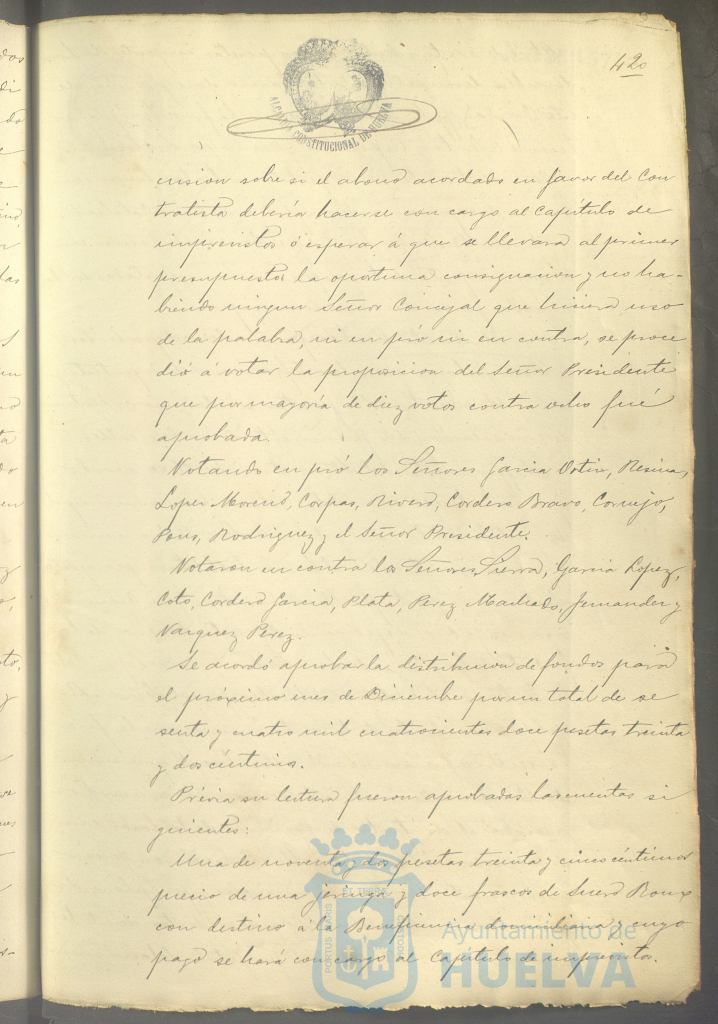 420
ALCALDIA CONSTITUCIONAL DE HUELVA
cusion sobre si el abono acordado en favor del Con
tratista debería hacerse con cargo al Capítulo de
imprevistos ó esperar á que se llevara al primer
presupuesto la oportuna consignacion y no ha-
biendo ningun Señor Concejal que hiciera uso
de la palabra, ni en pró ni en contra, se proce
dió á votar la proposicion del Señor Presidente
que por mayoría de diez votos contra ocho fué
aprobada.
Votando en pró los Señores Garcia Ortiz, Resina,
Lopez Moreno, Corpas, Rivero, Cordero Bravo, Cornejo,
Pons, Rodriguez y el Señor Presidente.
Votaron en contra los Señores Sierra, Garcia Lopez,
Coto, Cordero Garcia, Plata, Perez Machado, Fernandez y
Vazquez Perez.
Se acordó aprobar la distribucion de fondos para
el próximo mes de Diciembre por un total de se
senta y cuatro mil cuatrocientas doce pesetas treinta
y dos céntimos.
Prévia su lectura fueron aprobadas las cuentas si
guientes:
Una de noventa y dos pesetas treinta y cinco céntimos
precio de una jeringa y doce frascos de Suero Roux
con destino á la Beneficencia domiciliaria y cuyo
pago se hará con cargo al Capítulo de imprevistos.
PORTUS MARIS ET TERRAE CUSTODIA
Ayuntamiento de
HUELVA